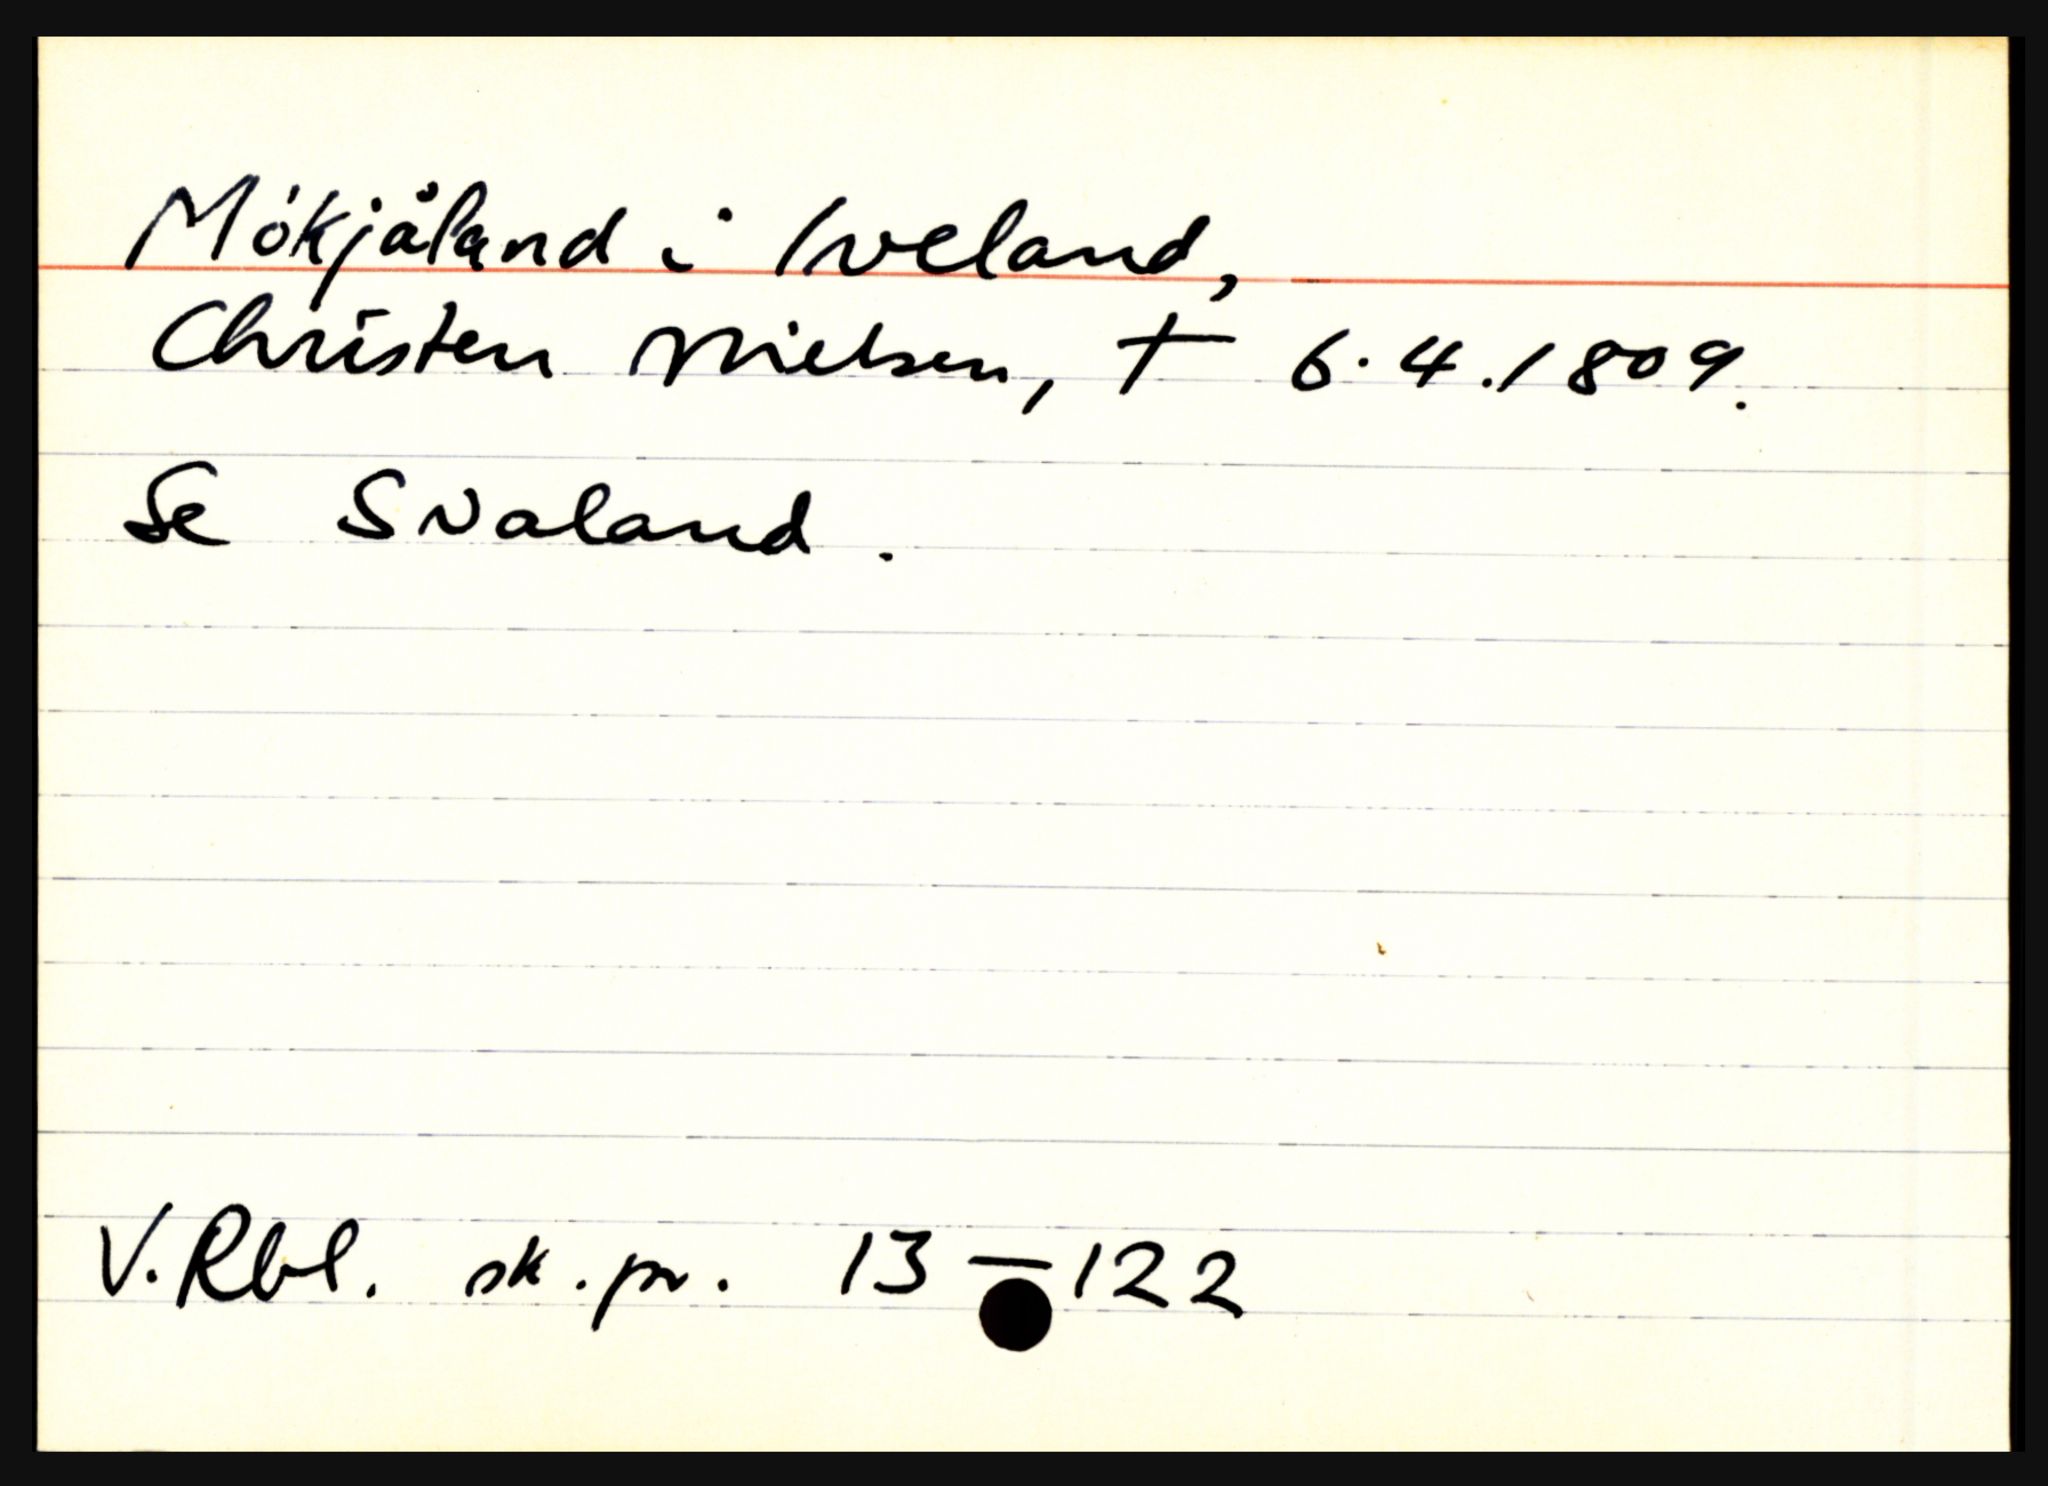 Mókjåland i Iveland,
Christen Nielsen, † 6.4.1809.
Se Svaland.
V. Rbl. sk. pr. 13 – 122